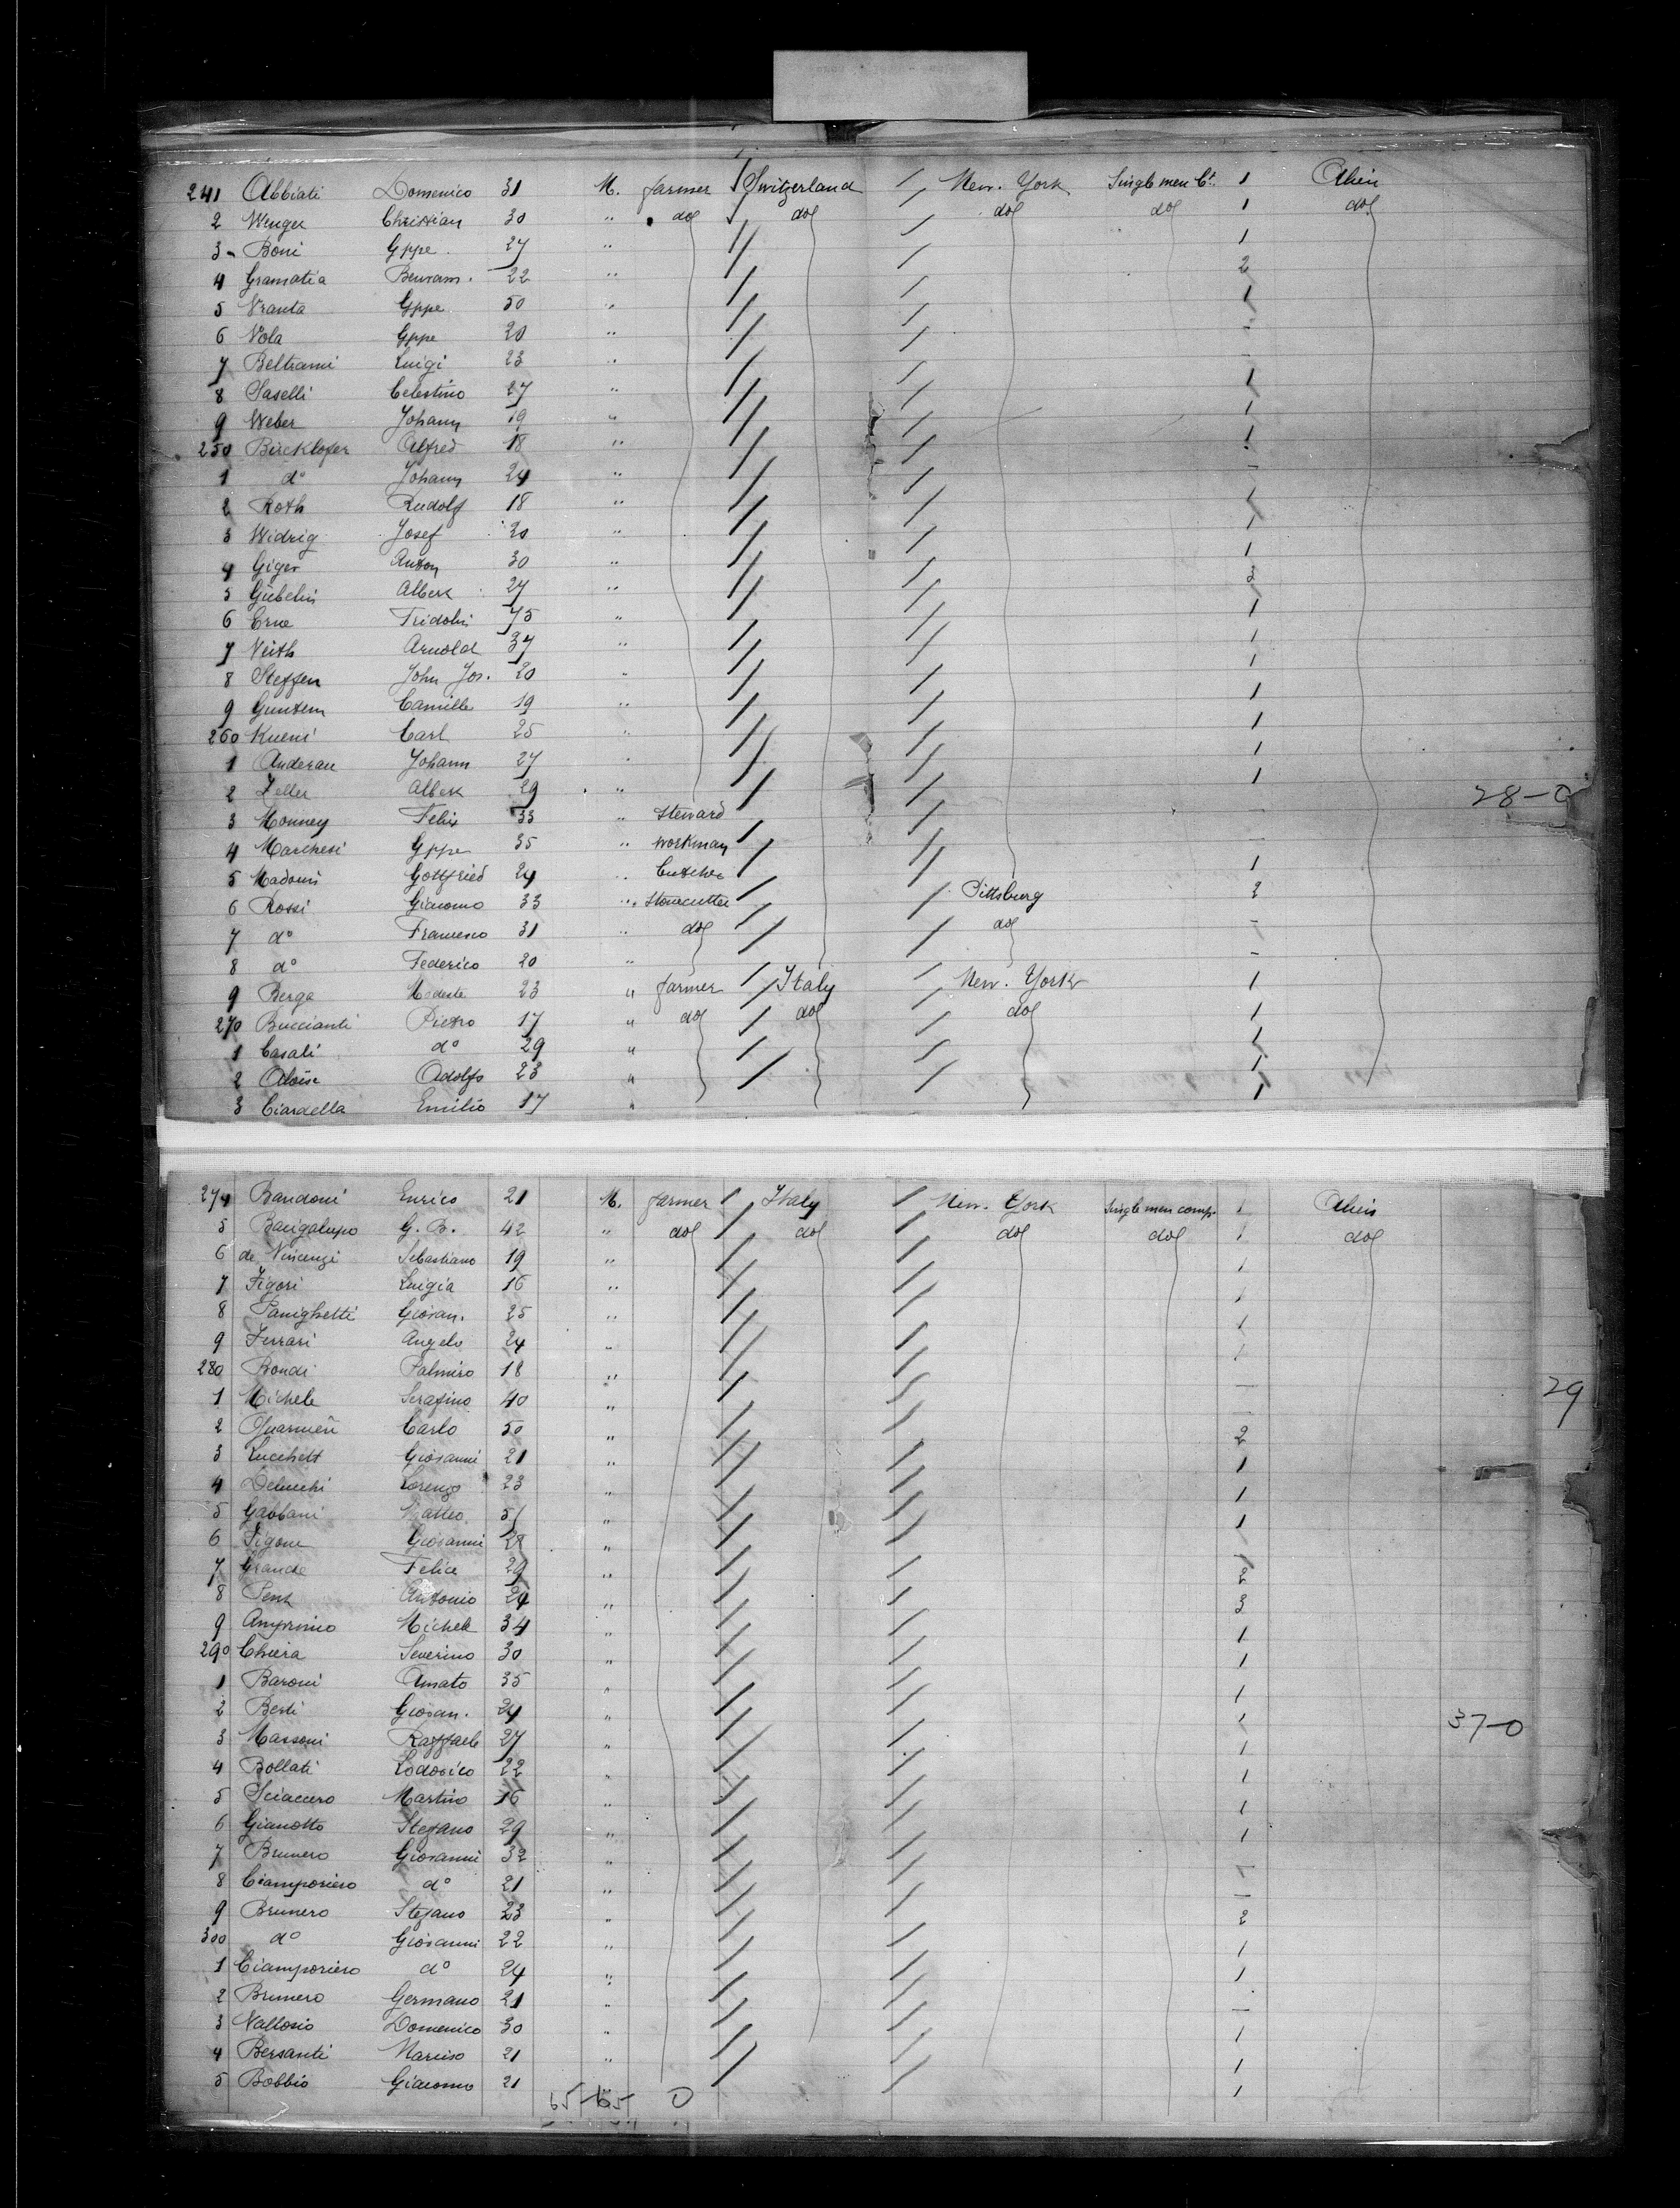 241 Abbiati Domenico 31 M. farmer Switzerland New. York Single men Ct. 1 Alien
2 Wenger Christian 30 " do do do do 1 do
3 Boni Gppe. 27 " 1
4 Gramatia 22 " 2
5 Vranta Gppe 50 " 1
6 Vola Gppe 20 " -
7 Beltrami Luigi 23 " -
8 Saselli Celestino 27 " 1
9 Weber Johann 19 " 1
250 Bircklofer Alfred 18 " 1
1 do Johann 24 " -
2 Roth Rudolf 18 " 1
3 Widrig Josef 20 " 1
4 Giger Anton 30 " 1
5 Gübelin Albert 27 " 3
6 Erne Fridolin 45 " 1
7 Veith Arnold 37 " 1
8 Steffen John Jos. 20 " 1
9 Guntern Camille 19 " 1
260 Kueni Carl 25 " 1
1 Anderau Johann 27 " 1
2 Zeller Albert 29 " 1
28-0
3 Monney Felix 33 " Steward -
4 Marchesi Gppe 35 " workman -
5 Madoni Gottfried 24 " butcher 1
6 Rossi Giacomo 33 " Stonecutter Pittsburg 2
7 do Francesco 31 " do do -
8 do Federico 20 " -
9 Berga Modeste 23 " farmer Italy New. York 1
270 Buccianti Pietro 17 " do do do 1
1 Casali do 29 " 1
2 Aloise Adolfo 23 " 1
3 Ciardella Emilio 17 " 1
274 Bandoni Enrico 21 M. farmer Italy New. York Single men comp. 1 Alien
5 Bacigalupo G. B. 42 " do do do do 1 do
6 de Vincenzi Sebastiano 19 " 1
7 Figori Luigia 16 " 1
8 Panighetti Giovan. 25 " 1
9 Ferrari Angelo 24 " 1
280 Bondi Palmiro 18 " -
29
1 Michele Serafino 40 " -
2 Guarnieri Carlo 50 " 2
3 Lucchett Giovanni 21 " 1
4 Delucchi Lorenzo 23 " 1
5 Gabbani Matteo 51 " 1
6 Figone Giovanni 28 " -
7 Grande Felice 29 " 2
8 Antonio 24 " 3
9 Amprimo Michele 34 " 1
290 Chiera Severino 30 " 1
1 Baroni Amato 35 " 1
2 Berti Giovan. 24 " 1
37-0
3 Massoni Raffaele 27 " 1
4 Bollati Lodovico 22 " 1
5 Sciaccero Martino 16 " 1
6 Gianotto Stefano 29 " 1
7 Brunero Giovanni 32 " -
8 Ciamporiero do 21 " -
9 Brunero Stefano 23 " 2
300 do Giovanni 22 " 1
1 Ciamporiero do 24 " 1
2 Brunero Germano 21 " -
3 Vallosio Domenico 30 " 1
4 Bersanti Narciso 21 " 1
5 Bobbio Giacomo 21 " 1
65-65 0